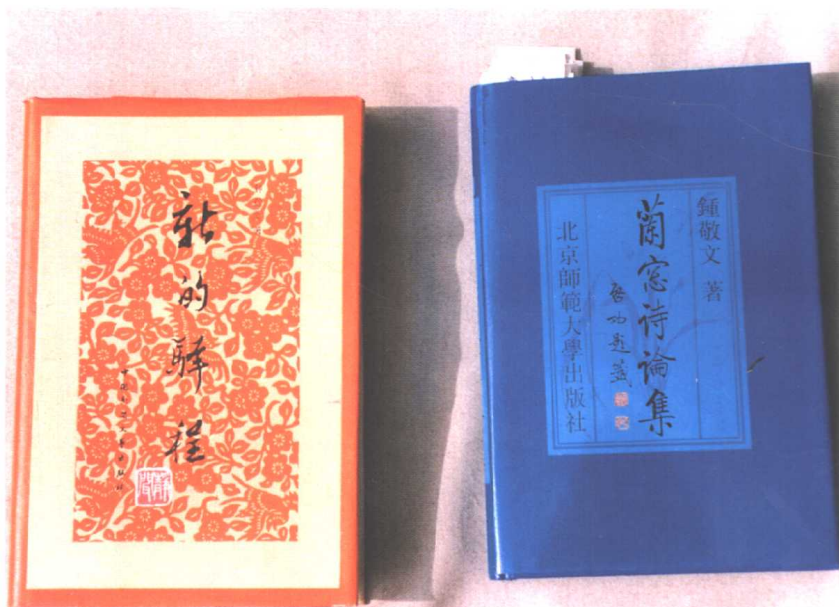 新的驿程
中国民间文艺出版社
鍾敬文 著
蘭窓诗論集
启功题籤
北京師範大學出版社